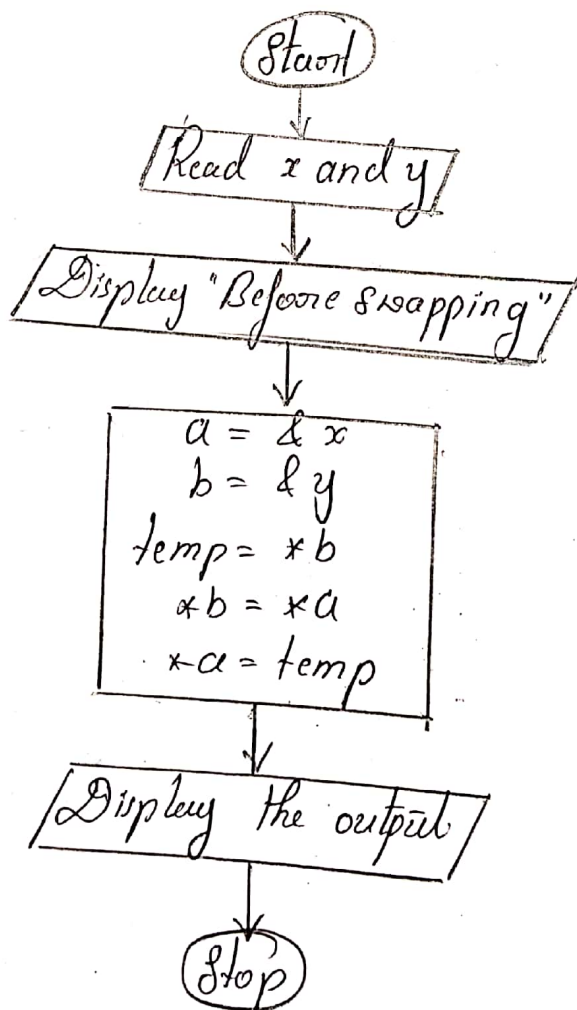 Start
Read x and y
Display "Before swapping"
a = & x
b = & y
temp = *b
*b = *a
*a = temp
Display the output
Stop